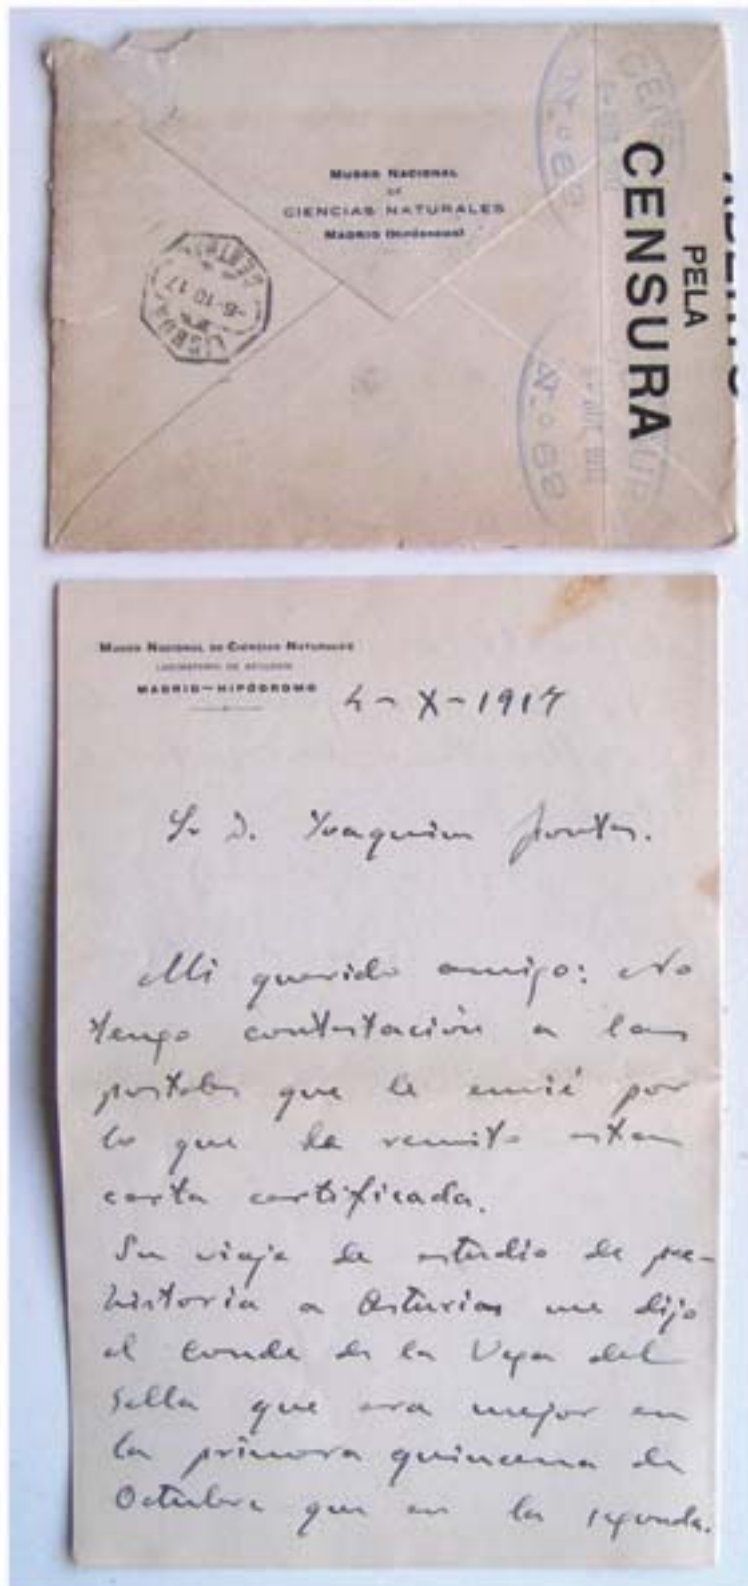 MUSEO NACIONAL
DE
CIENCIAS NATURALES
MADRID (Hipódromo)
LISBOA
-6-10 17
CENTRAL
PELA
CENSURA
MUSEO NACIONAL DE CIENCIAS NATURALES
MADRID-HIPÓDROMO
4-X-1917
Sr D. Joaquim Fontes.
Mi querido amigo: No
tengo contestación a las
postales que le envié por
lo que le remito esta
carta certificada.
Su viaje de estudio de pre-
historia a Asturias me dijo
el Conde de la Vega del
Sella que era mejor en
la primera quincena de
Octubre que en la segunda.